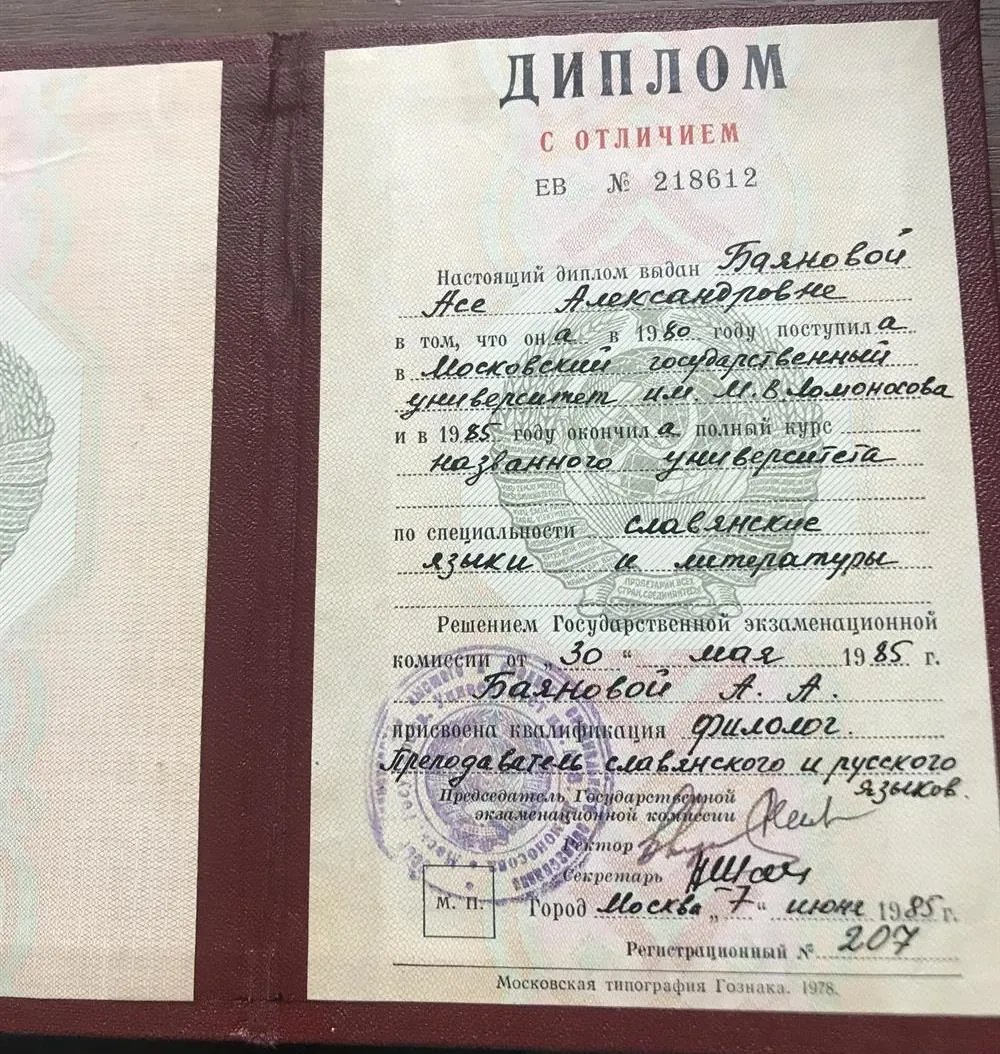 ДИПЛОМ
С ОТЛИЧИЕМ
ЕВ № 218612
Настоящий диплом выдан Баяновой
Асе Александровне
в том, что она в 1980 году поступила
в Московский государственный
университет им. М.В.Ломоносова
и в 1985 году окончила полный курс
названного университета
по специальности славянские
языки и литературы
ПРОЛЕТАРИИ ВСЕХ
СТРАН, СОЕДИНЯЙТЕСЬ!
Решением Государственной экзаменационной
комиссии от „30" мая 1985 г.
Баяновой А. А.
присвоена квалификация филолог.
Преподаватель славянского и русского
языков.
Председатель Государственной
экзаменационной комиссии
Ректор
Секретарь
М. П.
Город Москва „7" июня 1985 г.
Регистрационный № 207
Московская типография Гознака. 1978.